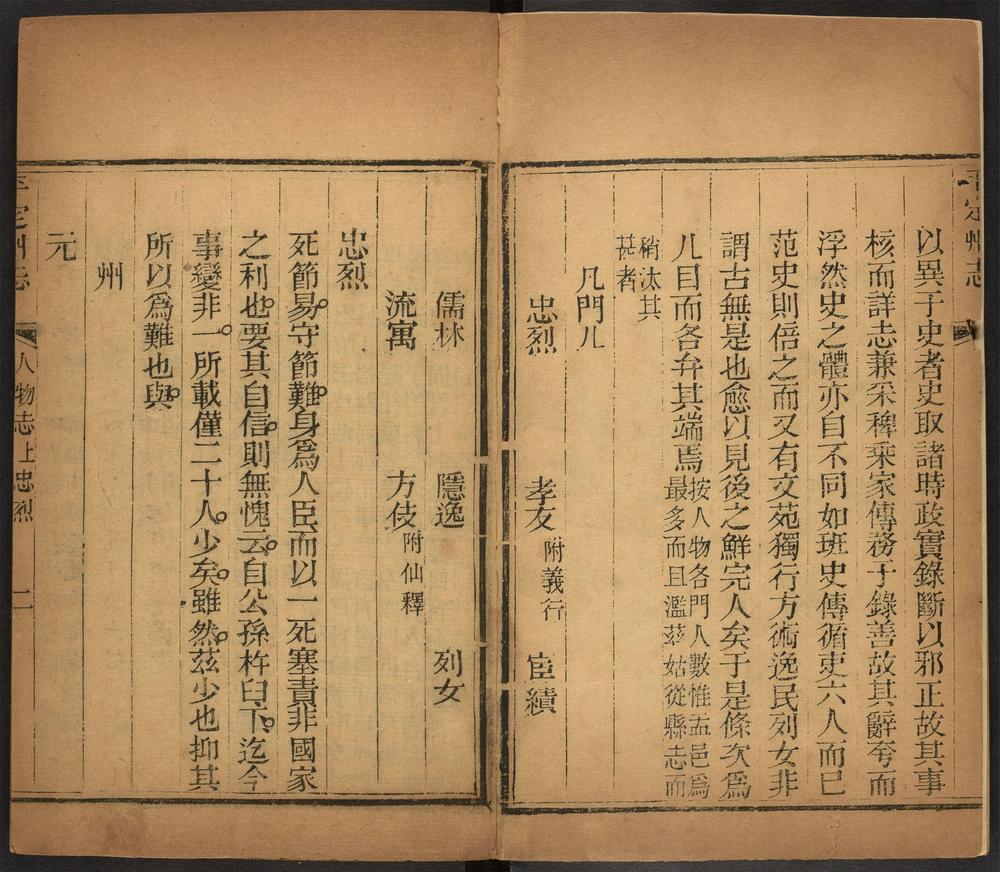 平定州志
以異于史者史取諸時政實錄斷以邪正故其事
核而詳志兼采稗乘家傳務于錄善故其辭夸而
浮然史之體亦自不同如班史傳循吏六人而已
范史則倍之而又有文苑獨行方術逸民列女非
謂古無是也愈以見後之鮮完人矣于是條次爲
凡目而各弁其端焉
按人物各門人數惟盂邑爲
最多而且濫茲姑從縣志而
稍汰其
甚者
凡門八
忠烈 孝友 附義行 宦績
儒林 隱逸 列女
流寓 方伎 附仙釋
忠烈
死節易守節難身爲人臣而以一死塞責非國家
之利也要其自信則無愧云自公孫杵臼下迄今
事變非一所載僅二十人少矣雖然茲少也抑其
所以爲難也與
州
元
平定州志 人物志上忠烈 二